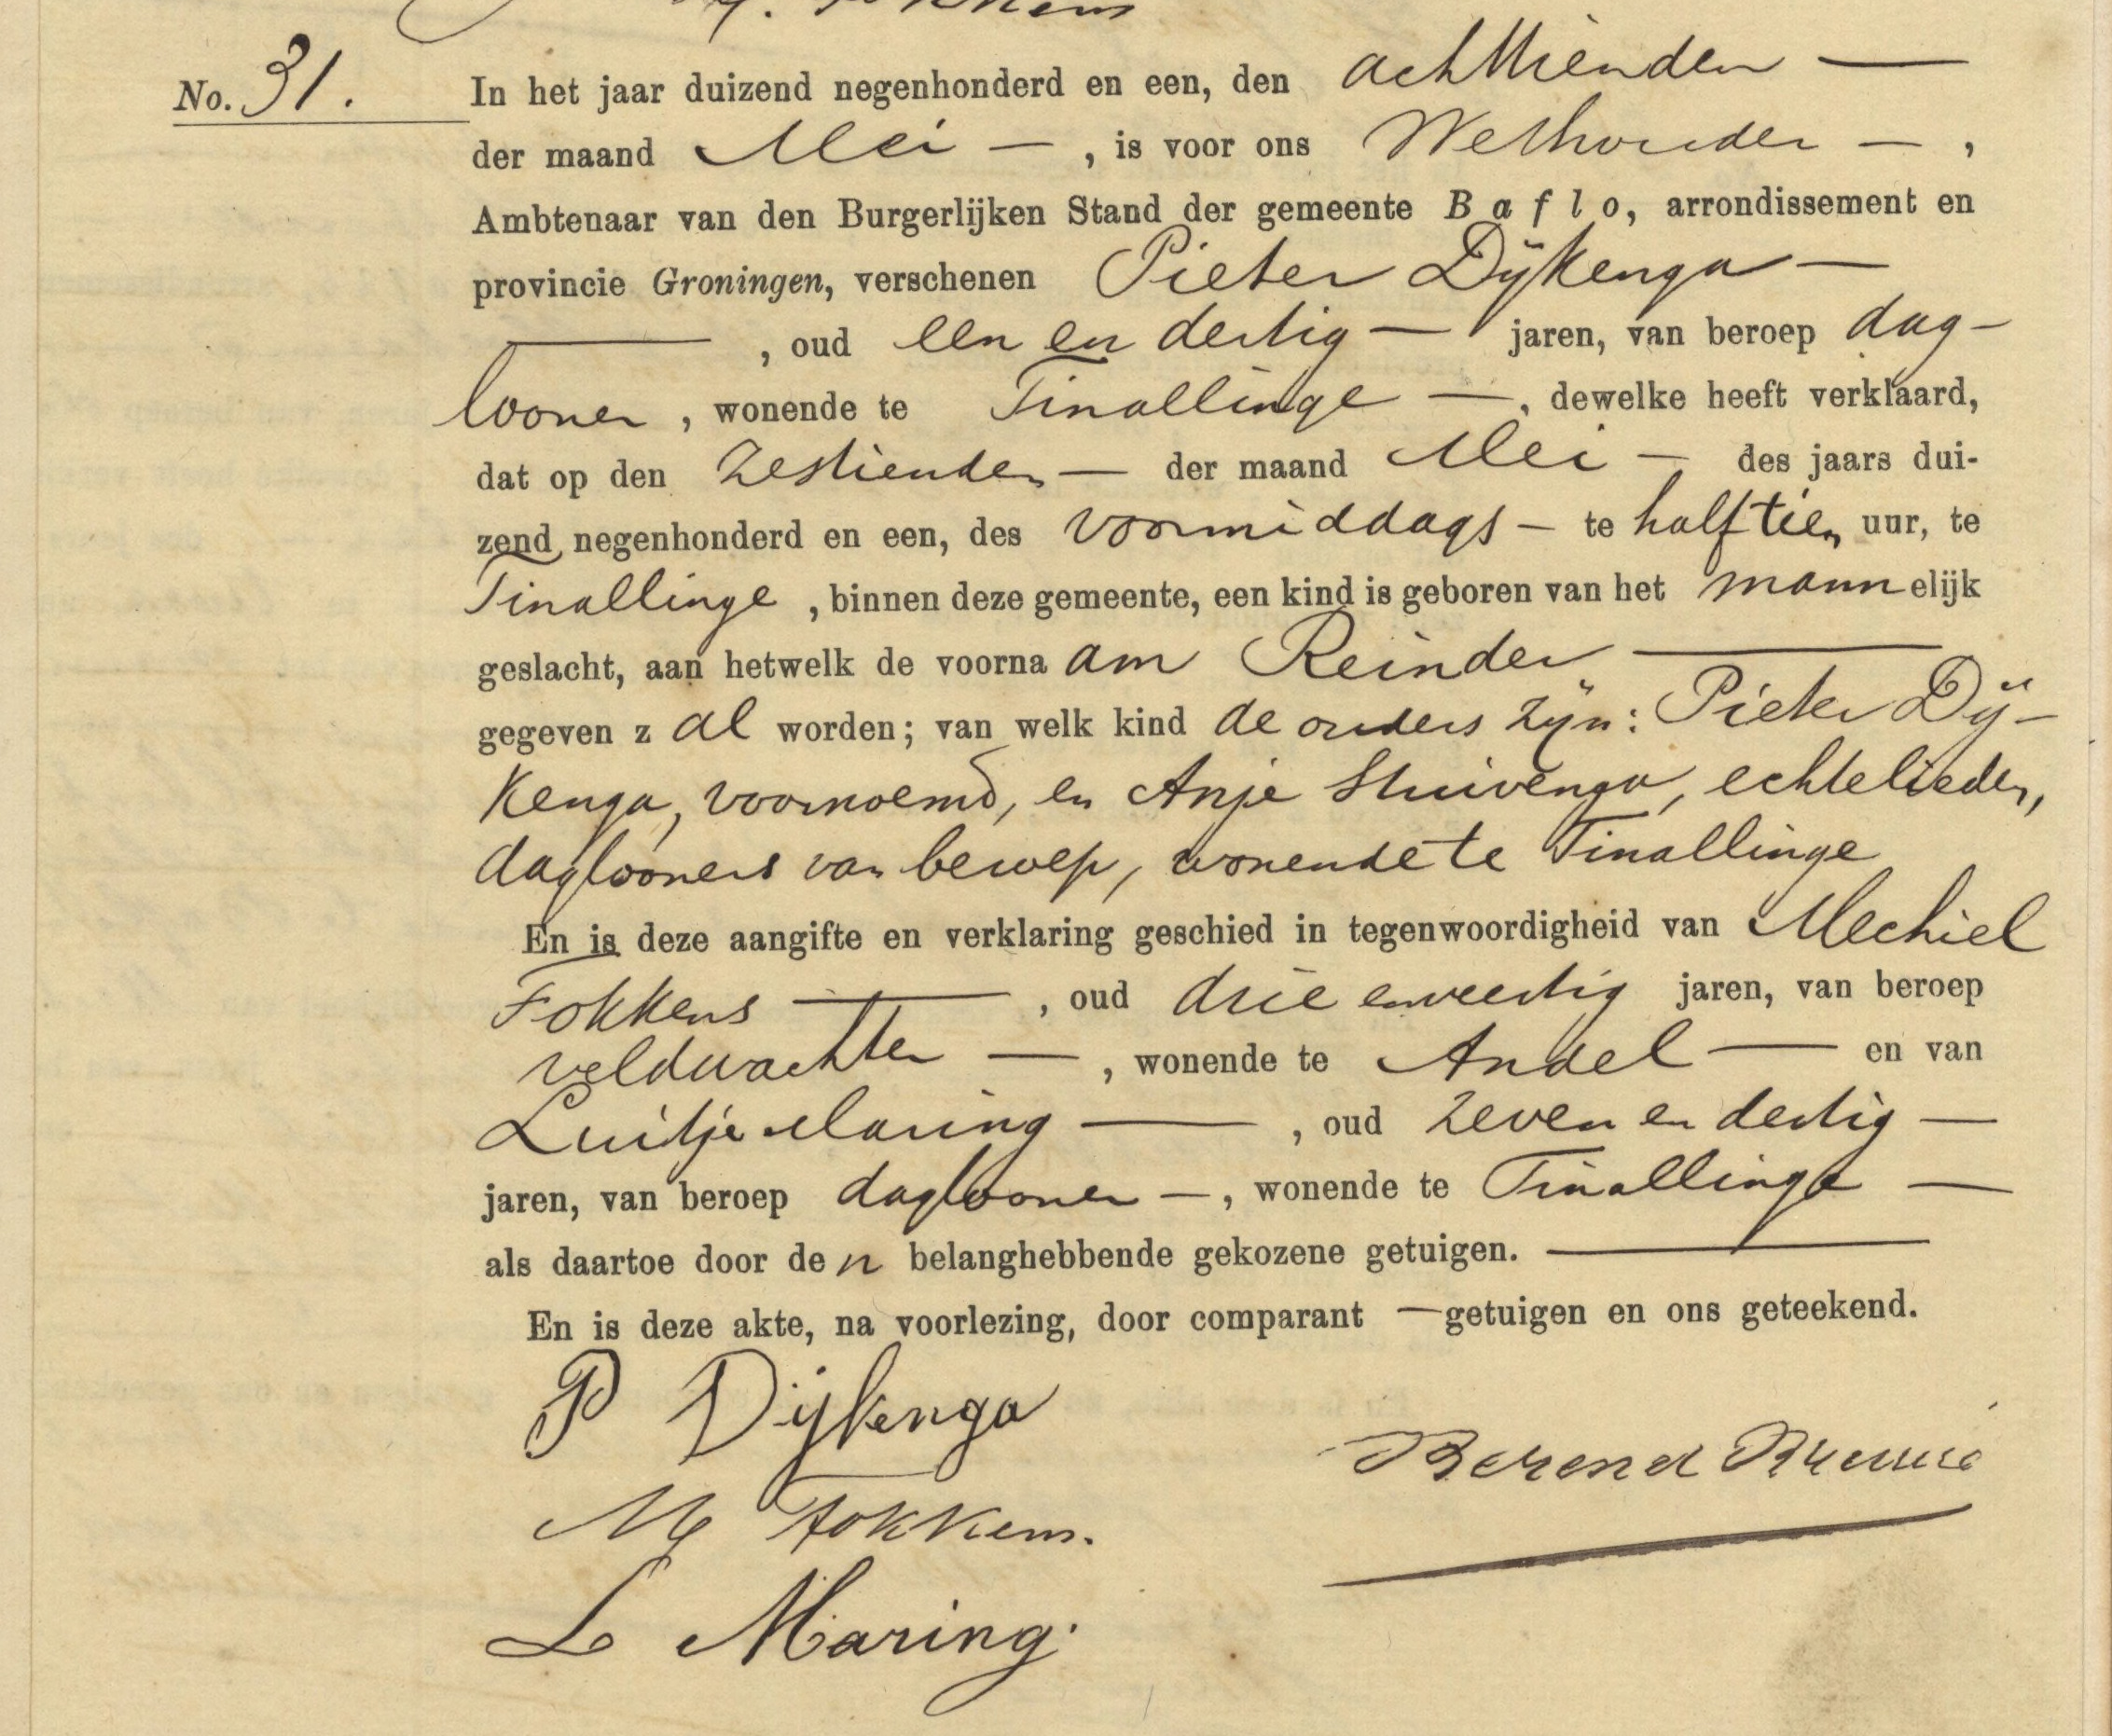 Fokkens
No. 31.
In het jaar duizend negenhonderd en een, den achttienden —
der maand Mei — , is voor ons Wethouder — ,
Ambtenaar van den Burgerlijken Stand der gemeente Baflo, arrondissement en
provincie Groningen, verschenen Pieter Dijkenga —
— , oud een en dertig — jaren, van beroep dag-
looner , wonende te Tinallinge — , dewelke heeft verklaard,
dat op den zestienden — der maand Mei — des jaars dui-
zend negenhonderd en een, des voormiddags — te half tien uur, te
Tinallinge , binnen deze gemeente, een kind is geboren van het mannelijk
geslacht, aan hetwelk de voornaam Reinder —
gegeven zal worden; van welk kind de ouders zijn: Pieter Dij-
kenga, voornoemd, en Anje Stuivenga, echtelieden,
daglooners van beroep, wonende te Tinallinge
En is deze aangifte en verklaring geschied in tegenwoordigheid van Mechiel
Fokkens — , oud drie en veertig jaren, van beroep
veldwachter — , wonende te Andel — en van
Luitje Maring — , oud zeven en dertig —
jaren, van beroep daglooner — , wonende te Tinallinge —
als daartoe door den belanghebbende gekozene getuigen. —
En is deze akte, na voorlezing, door comparant — getuigen en ons geteekend.
P Dijkenga
Berend
M Fokkens.
L Maring.